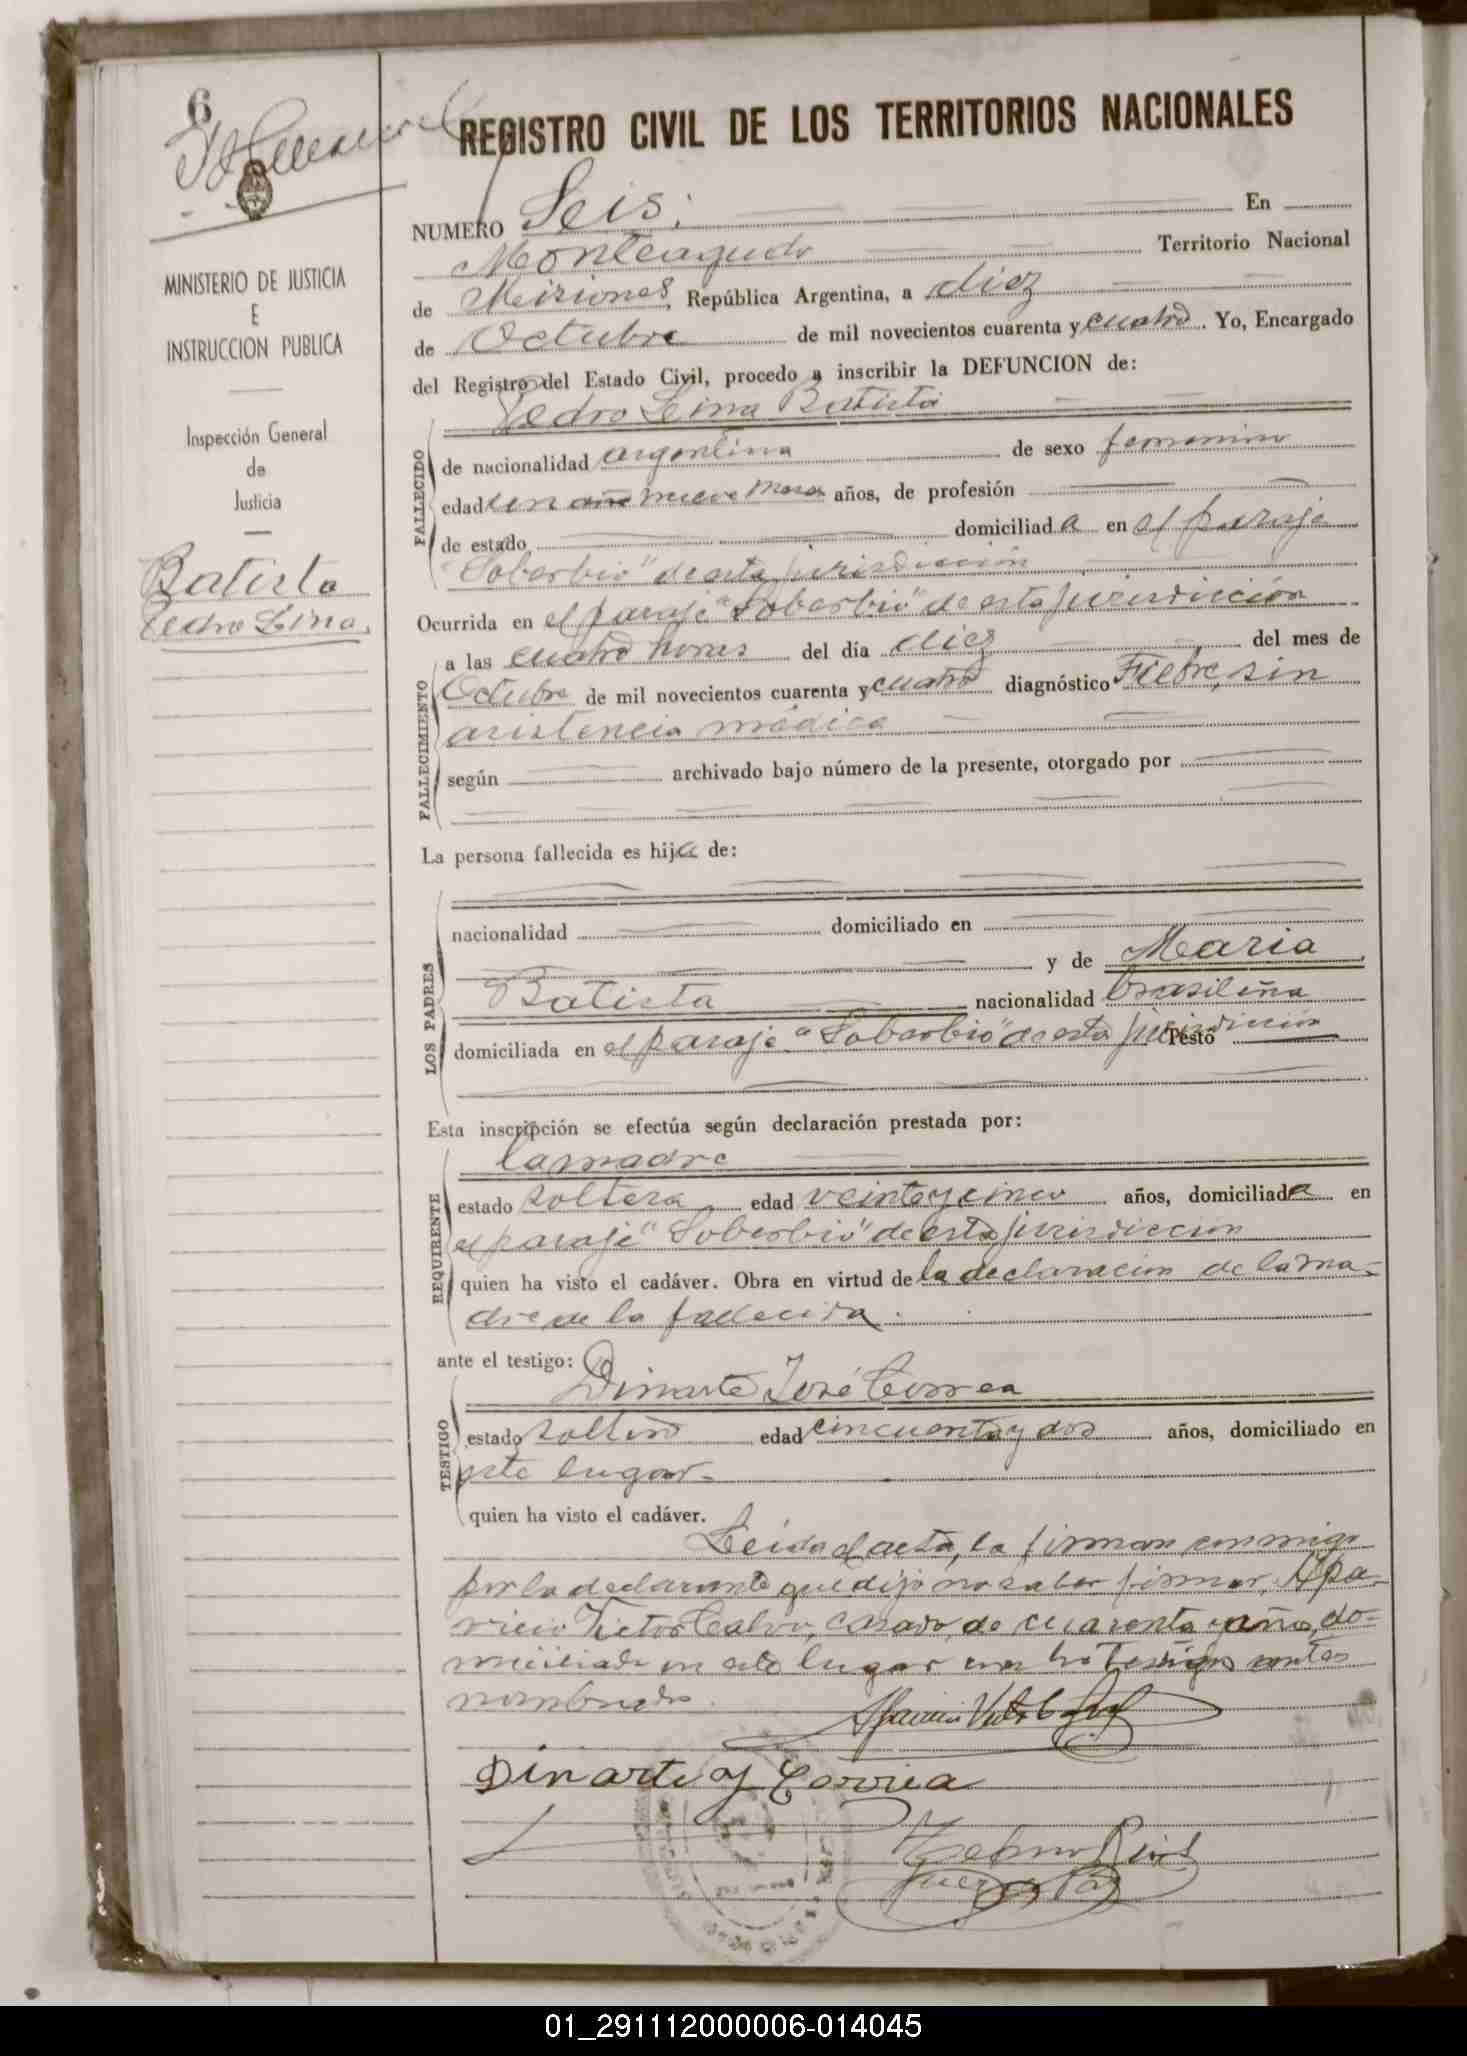 6
REGISTRO CIVIL DE LOS TERRITORIOS NACIONALES
NUMERO Seis. En
Monteagudo Territorio Nacional
de Misiones, República Argentina, a diez
de Octubre de mil novecientos cuarenta y cuatro. Yo, Encargado
del Registro del Estado Civil, procedo a inscribir la DEFUNCION de:
Pedro Lina Batista
FALLECIDO
de nacionalidad argentina de sexo femenino
edad un año nueve meses años, de profesión
de estado domiciliad a en el paraje
"Soberbio" de esta jurisdicción
Ocurrida en el paraje "Soberbio" de esta jurisdicción
FALLECIMIENTO
a las cuatro horas del día diez del mes de
Octubre de mil novecientos cuarenta y cuatro diagnóstico Fiebre, sin
asistencia médica
según archivado bajo número de la presente, otorgado por
La persona fallecida es hija de:
LOS PADRES
nacionalidad domiciliado en
y de Maria
Batista nacionalidad brasileña
domiciliada en el paraje "Soberbio" de esta jurisdicción Testó
Esta inscripción se efectúa según declaración prestada por:
la madre
REQUIRENTE
estado soltera edad veinte y cinco años, domiciliada en
el paraje "Soberbio" de esta jurisdicción
quien ha visto el cadáver. Obra en virtud de la declaración de la ma-
dre de la fallecida.
ante el testigo:
Dinarte José Correa
TESTIGO
estado soltero edad cincuenta y dos años, domiciliado en
este lugar-
quien ha visto el cadáver.
Leida el acta, la firman conmigo
por la declarante que dijo no saber firmar, Apa-
ricio Victor Calvo, casado, de cuarenta años, do-
miciliado en este lugar con los testigos antes
nombrados.
Dinarte J Correa
Juez de Paz
MINISTERIO DE JUSTICIA
E
INSTRUCCION PUBLICA
Inspección General
de
Justicia
Batista
Pedro Lina.
01_291112000006-014045